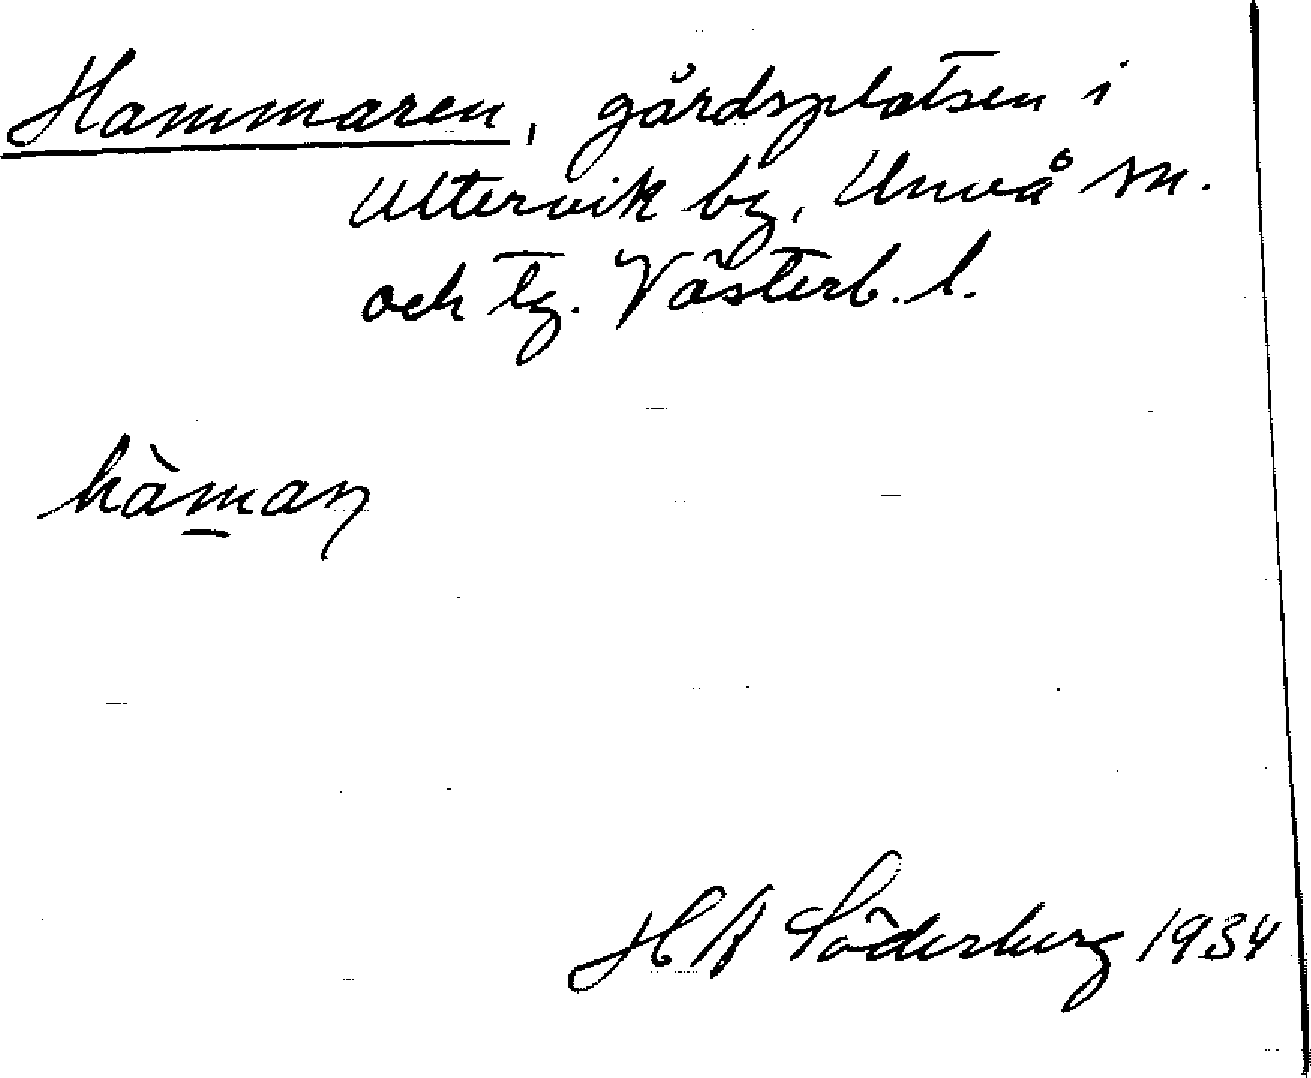 Hammaren, gårdsplatsen i
Ultervik by, Umeå sn.
och tg. Västerb. l.
hàm̲aɲ
H A Söderberg 1934